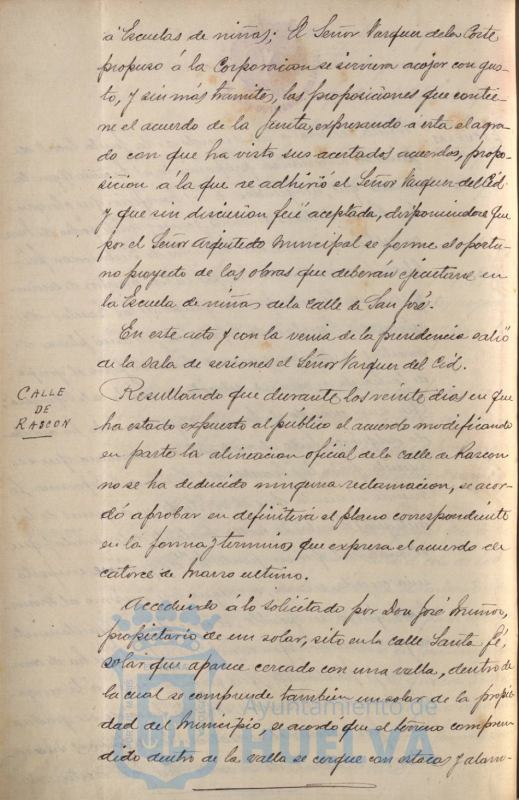 á Escuelas de niñas; El Señor Vazquez de la Corte
propuso á la Corporacion se sirviera acojer con gus-
to, y sin más tramites, las proposiciones que contie-
ne el acuerdo de la Junta, expresando á esta el agra-
do con que ha visto sus acertados acuerdos, propo-
sicion á la que se adhirió el Señor Vazquez del Cid
y que sin discusion fué aceptada, disponiendose que
por el Señor Arquitecto Municipal se forme el oportu-
no proyecto de las obras que deberán ejecutarse en
la Escuela de niñas de la Calle de San José.
En este acto y con la venia de la presidencia salió
de la sala de sesiones el Señor Vazquez del Cid.
CALLE
DE
RASCON
Resultando que durante los veinte dias en que
ha estado expuesto al público el acuerdo modificando
en parte la alineacion oficial de la calle de Rascon
no se ha deducido ninguna reclamacion, se acor-
dó aprobar en definitiva el plano correspondiente
en la forma y terminos que expresa el acuerdo de
catorce de Marzo ultimo.
Accediendo á lo solicitado por Don José Muñoz,
propietario de un solar, sito en la calle Santa Fé,
solar que aparece cercado con una valla, dentro de
la cual se comprende también un solar de la propie-
dad del Municipio, se acordó que el terreno compren-
dido dentro de la valla se cerque con estacas y alam-
Ayuntamiento de
HUELVA